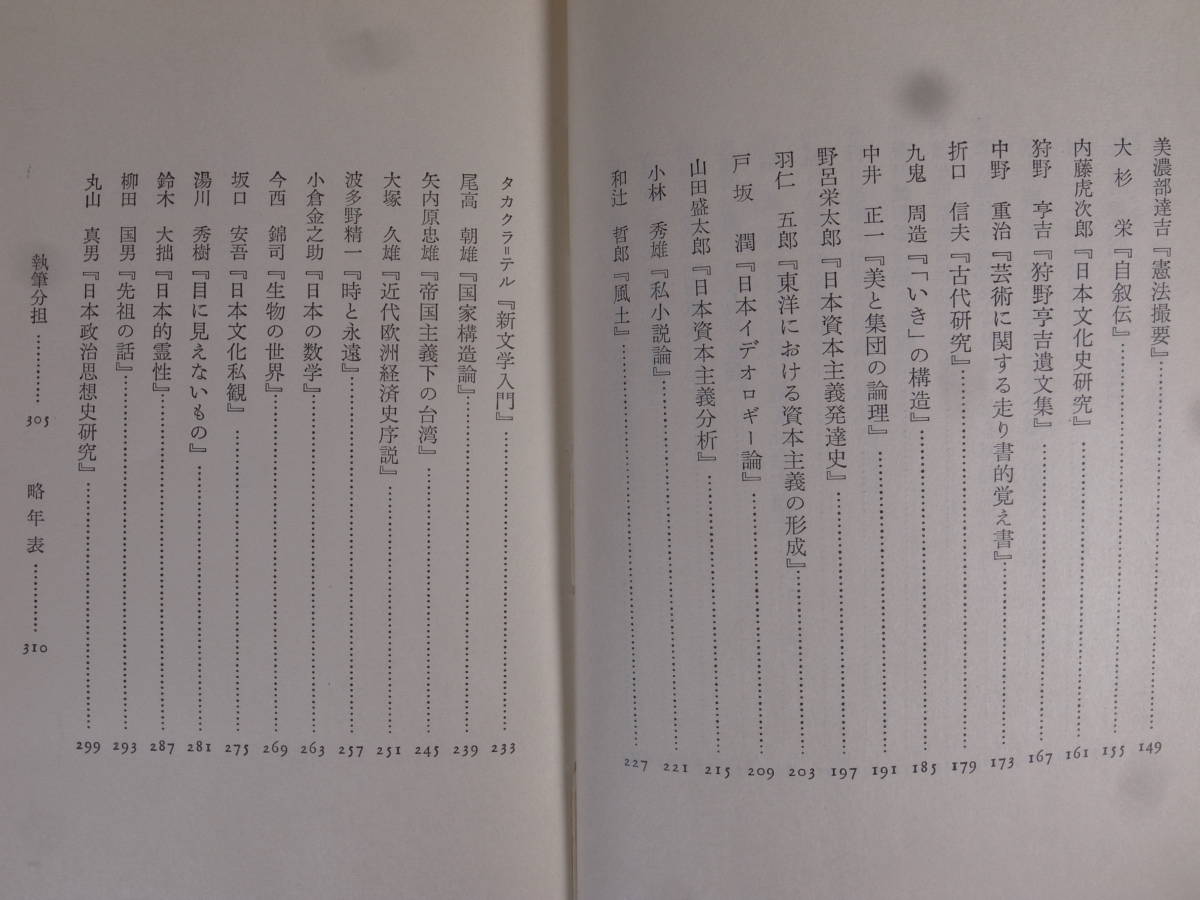 美濃部達吉『憲法撮要』……149
大杉　栄『自叙伝』……155
内藤虎次郎『日本文化史研究』……161
狩野　亨吉『狩野亨吉遺文集』……167
中野　重治『芸術に関する走り書的覚え書』……173
折口　信夫『古代研究』……179
九鬼　周造『「いき」の構造』……185
中井　正一『美と集団の論理』……191
野呂栄太郎『日本資本主義発達史』……197
羽仁　五郎『東洋における資本主義の形成』……203
戸坂　潤『日本イデオロギー論』……209
山田盛太郎『日本資本主義分析』……215
小林　秀雄『私小説論』……221
和辻　哲郎『風土』……227
タカクラ=テル『新文学入門』……233
尾高　朝雄『国家構造論』……239
矢内原忠雄『帝国主義下の台湾』……245
大塚　久雄『近代欧洲経済史序説』……251
波多野精一『時と永遠』……257
小倉金之助『日本の数学』……263
今西　錦司『生物の世界』……269
坂口　安吾『日本文化私観』……275
湯川　秀樹『目に見えないもの』……281
鈴木　大拙『日本的霊性』……287
柳田　国男『先祖の話』……293
丸山　真男『日本政治思想史研究』……299
執筆分担……305　略年表……310